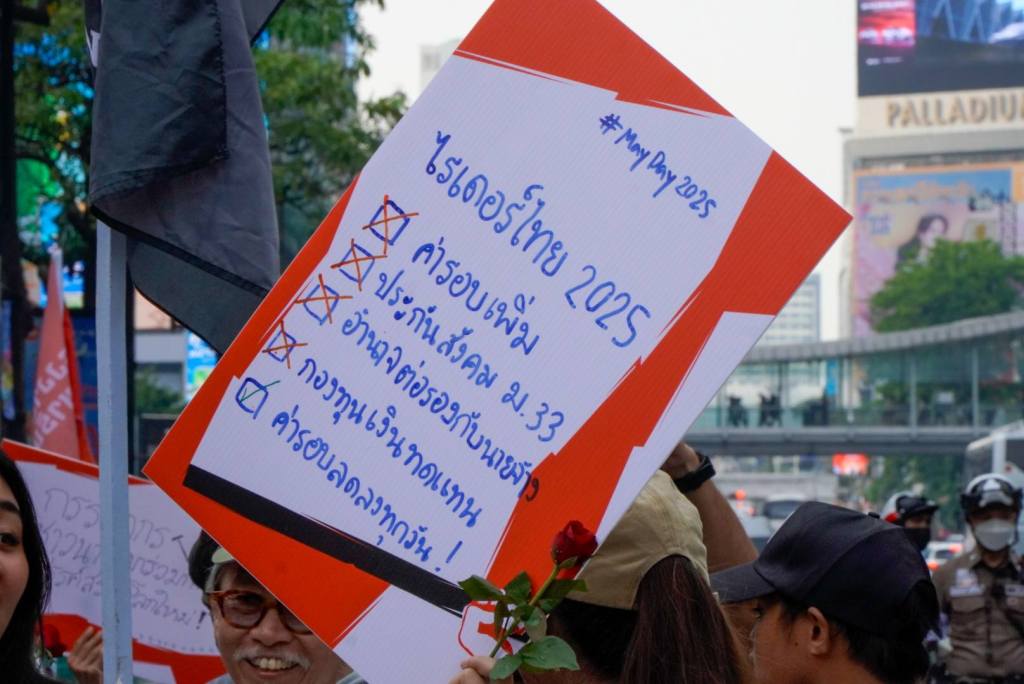 #MayDay2025
ไรเดอร์ไทย 2025
ค่ารอบเพิ่ม
ประกันสังคม ม.33
อำนาจต่อรองกับนายจ้าง
กองทุนเงินทดแทน
ค่ารอบลดลงทุกวัน!
PALLADIU